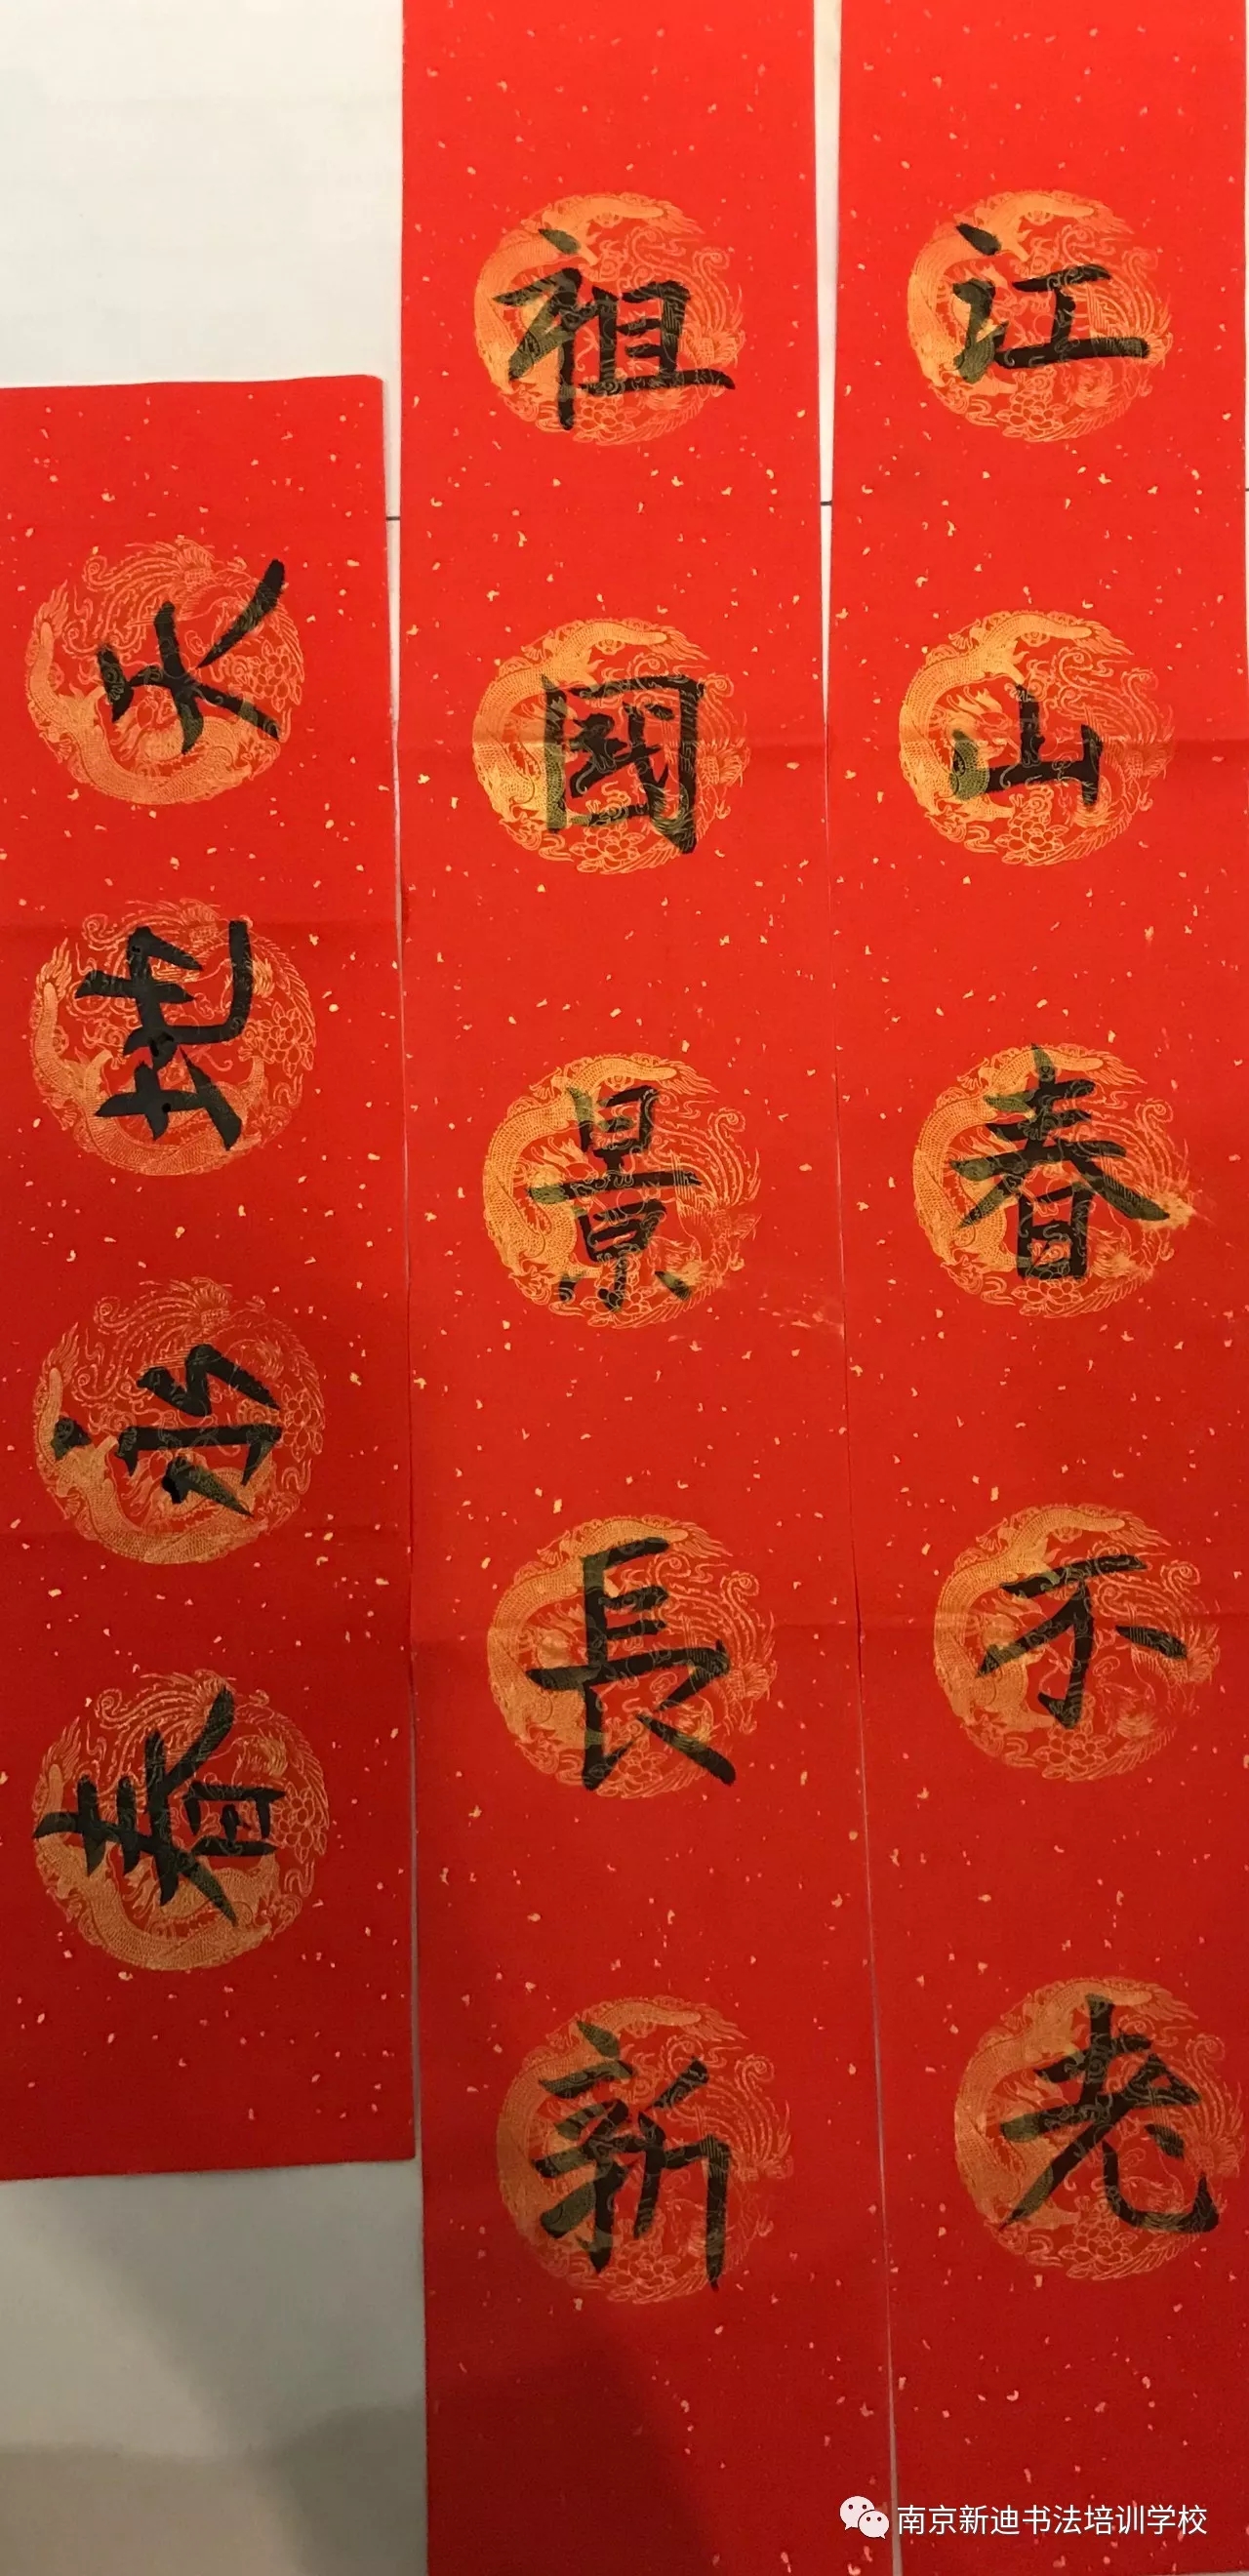 江山春不老
祖國景長新
天地永春
南京新迪书法培训学校